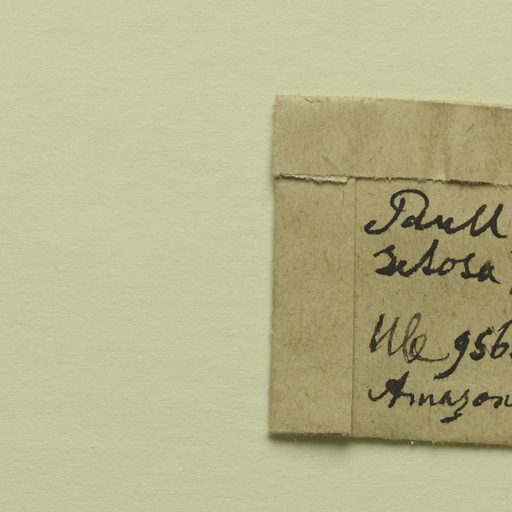 Paull
setosa
Ule 956
Amazon